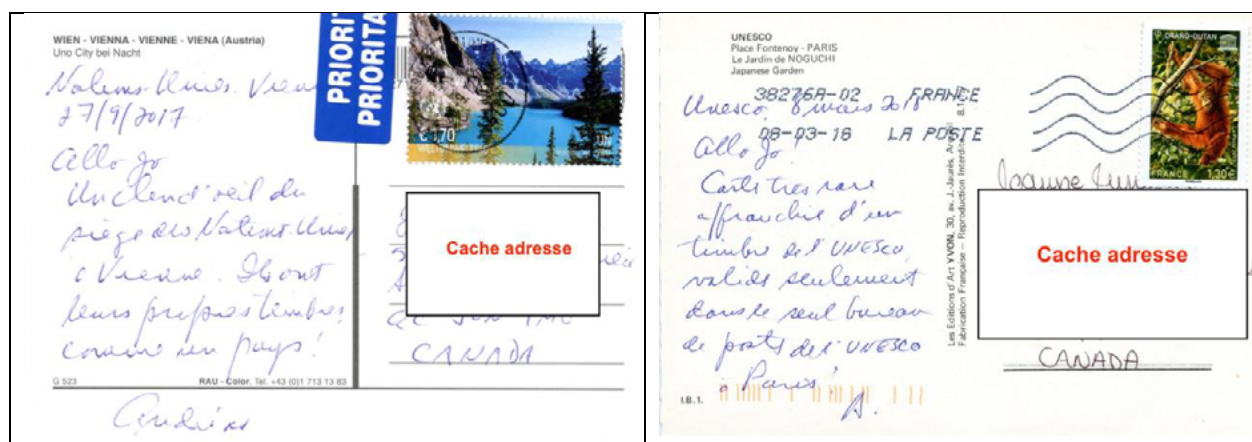 WIEN - VIENNA - VIENNE - VIENA (Austria)
Uno City bei Nacht
Nations-Unies. Vien
27/9/2017
Allo Jo
Un clin d'œil du
siège des Nations-Unies
à Vienne. Ils ont
leurs propres timbres
comme un pays!
G 523
RAU - Color. Tel. +43 (0)1 713 13 83
PRIORI
PRIORITA
€ 1,70
UN
Cache adresse
QC
CANADA
UNESCO
Place Fontenoy - PARIS
Le Jardin de NOGUCHI
Japanese Garden
38276A-02 FRANCE
Unesco, 8 mars 2018
08-03-16 LA POSTE
Allo Jo!
Carte très rare
affranchie d'un
timbre de l'UNESCO,
valide seulement
dans le seul bureau
de poste de l'UNESCO
à Paris!
A.
I.B.1.
Les Editions d'Art YVON, 30, av. J.-Jaurès, Arcueil
Fabrication Française - Reproduction Interdite
ORANG-OUTAN
FRANCE 1,30€
Cache adresse
CANADA